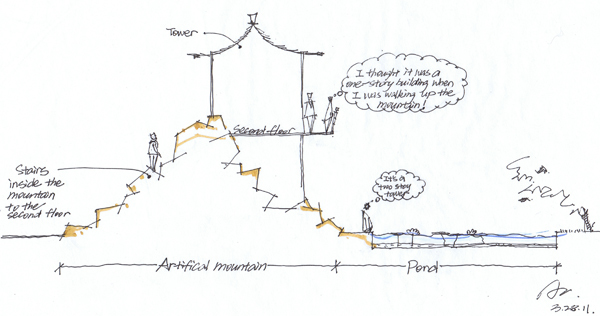 Tower
I thought it was a
one-story building when
I was walking up the
mountain!
Second floor
Stairs
inside the
mountain
to the
second floor
It's a
two story
tower
Artifical mountain
Pond
3.28.11.